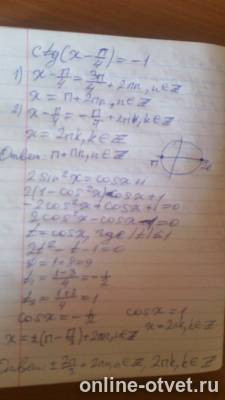 ctg(x-π/4)=-1
1) x-π/4=3π/4+2πn, n∈Z
x=π+2πn, n∈Z
2) x-π/4=-π/4+2πk, k∈Z
x=2πk, k∈Z
Ответ: π+πn, n∈Z
π
2sin²x=cosx+1
-2cos²x+cosx+1=0
2cos²x-cosx-1=0
t=cosx, где |t|≤1
2t²-t-1=0
D=1+8=9
t₁=(1-3)/4=-1/2
t₂=(1+3)/4=1
cosx=-1/2 cosx=1
x=2πk, k∈Z
Ответ: ±2π/3+2πn, n∈Z, 2πk, k∈Z
online-otvet.ru